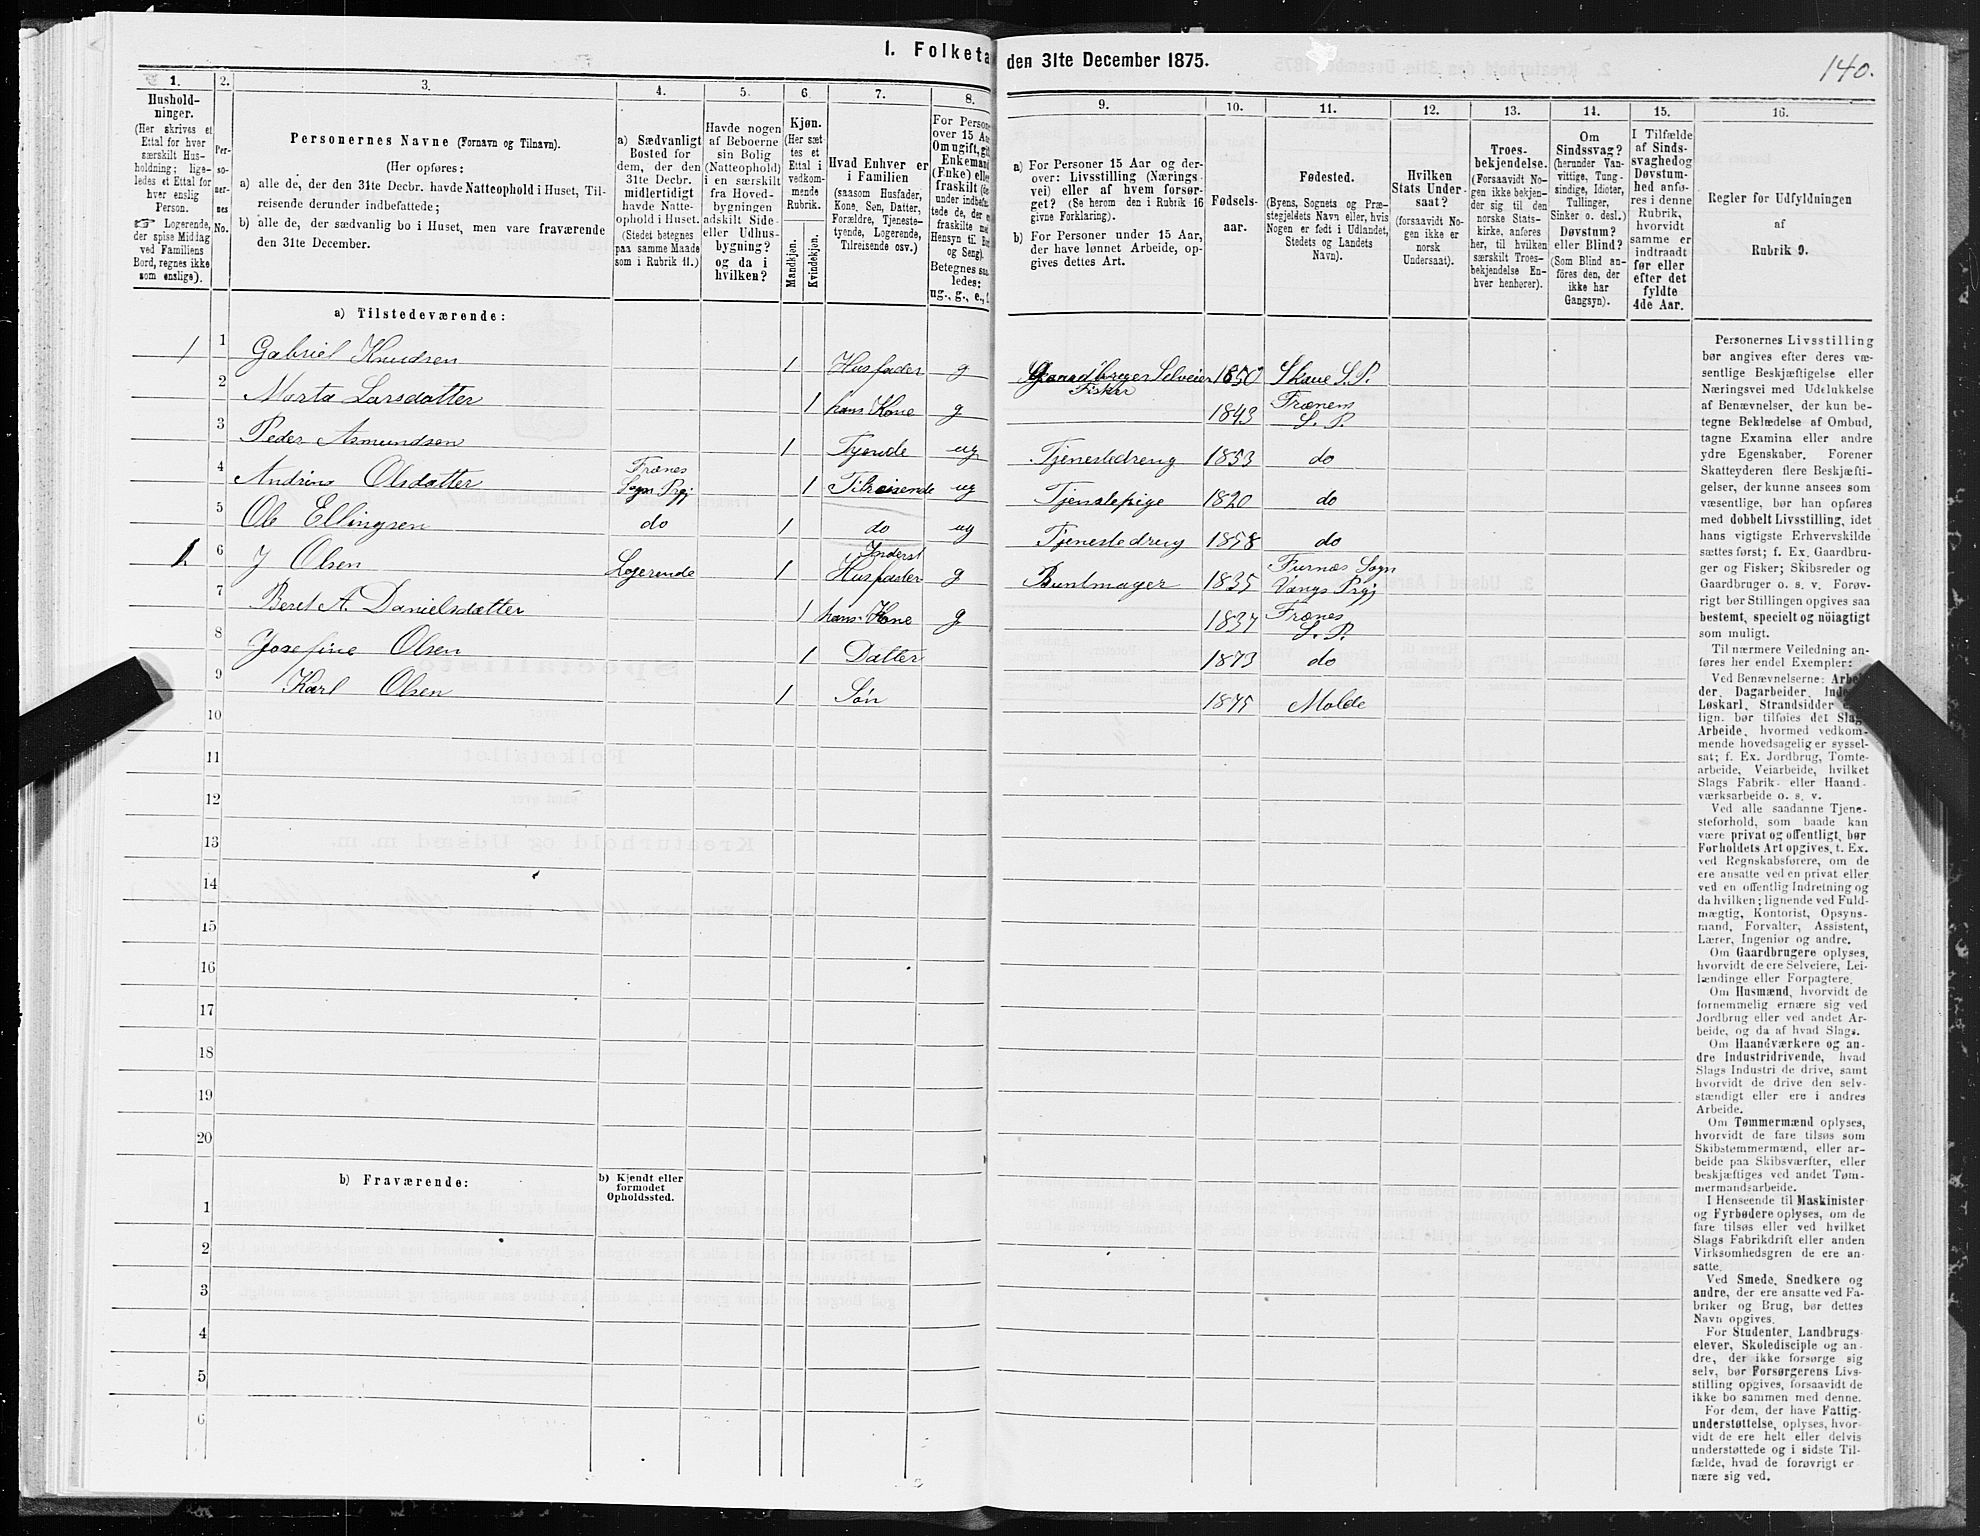 1. Folketa
den 31te December 1875.
140.
1.
Hushold-
ninger.
(Her skrives et
Ettal for hver
særskilt Hus-
holdning; lige-
ledes et Ettal for
hver enslig
Person.
☞ Logerende,
der spise Middag
ved Familiens
Bord, regnes ikke
som enslige).
2.
Per-
so-
ner-
nes
No.
3.
Personernes Navne (Fornavn og Tilnavn).
(Her opføres:
a) alle de, der den 31te Decbr. havde Natteophold i Huset, Til-
reisende derunder indbefattede;
b) alle de, der sædvanlig bo i Huset, men vare fraværende
den 31te December.
4.
a) Sædvanligt
Bosted for
dem, der den
31te Decbr.
midlertidigt
havde Natte-
ophold i Huset.
(Stedet betegnes
paa samme Maade
som i Rubrik 11.)
5.
Havde nogen
af Beboerne
sin Bolig
(Natteophold)
i en særskilt
fra Hoved-
bygningen
adskilt Side-
eller Udhus-
bygning?
og da i
hvilken?
6.
Kjøn.
(Her sæt-
tes et
Ettal i
vedkom-
mende
Rubrik.
Mandkjøn.
Kvindekjøn.
7.
Hvad Enhver er
i Familien
(saasom Husfader,
Kone, Søn, Datter,
Forældre, Tjeneste-
tyende, Logerende,
Tilreisende osv.)
8.
For Persone
over 15 Aa
Om ugift, git
Enkemand
(Enke) elle
fraskilt (de
under indbefat-
tede de, der e
fraskilte med
Hensyn til Bo
og Seng).
Betegnes saa
ledes:
ug., g., e., f.
9.
a) For Personer 15 Aar og der-
over: Livsstilling (Nærings
vei) eller af hvem forsør-
get? (Se herom den i Rubrik 16
givne Forklaring).
b) For Personer under 15 Aar,
der have lønnet Arbeide, op-
gives dettes Art.
10.
Fødsels-
aar.
11.
Fødested.
(Byens, Sognets og Præ-
stegjeldets Navn eller, hvis
Nogen er født i Udlandet,
Stedets og Landets
Navn).
12.
Hvilken
Stats Under-
saat?
(forsaavidt No-
gen ikke er
norsk
Undersaat).
13.
Troes-
bekjendelse.
(Forsaavidt No-
gen ikke bekjen-
der sig til den
norske Stats-
kirke, anføres
her, til hvilken
særskilt Troes-
bekjendelse En-
hver henhører).
14.
Om
Sindssvag?
(herunder Van-
vittige, Tung-
sindige, Idioter,
Tullinger,
Sinker o. desl.)
Døvstum?
eller Blind?
(Som Blind an-
føres den, der
ikke har
Gangsyn).
15.
I Tilfælde
af Sinds-
svaghed og
Døvstum-
hed anfø-
res i denne
Rubrik,
hvorvidt
samme er
indtraadt
før eller
efter det
fyldte
4de Aar.
16.
Regler for Udfyldningen
af
Rubrik 9.
a) Tilstedeværende:
1 1 Gabriel Knudsen 1 Husfader g Gaardbruger Selveier Fisker 1850 Skaue S. P.
2 Marta Larsdatter 1 hans Kone g 1843 Frænem S. P.
3 Peder Asmundsen 1 Tjende ug Tjenestedreng 1853 do
4 Andrine Olsdatter Frænes Sogn Prgj 1 Tilreisende ug Tjenstepige 1820 do
5 Ole Ellingsen do 1 do ug Tjenestedreng 1858 do
1 6 J Olsen Logerende 1 Inderst Husfader g Buntmager 1835 Furnæs Sogn Vangs Prgj
7 Beret A. Danielsdatter 1 hans Kone g 1837 Frænes S. P.
8 Josefine Olsen 1 Datter 1873 do
9 Karl Olsen 1 Søn 1875 Molde
10
11
12
13
14
15
16
17
18
19
20
b) Fraværende:
b) Kjendt eller
formodet
Opholdssted.
1
2
3
4
5
6
Personernes Livsstilling
bør angives efter deres væ-
sentlige Beskjæftigelse eller
Næringsvei med Udelukkelse
af Benævnelser, der kun be-
tegne Beklædelse af Ombud,
tagne Examina eller andre
ydre Egenskaber. Forener
Skatteyderen flere Beskjæfti-
gelser, der kunne ansees som
væsentlige, bør han opføres
med dobbelt Livsstilling, idet
hans vigtigste Erhvervskilde
sættes først; f. Ex. Gaardbru-
ger og Fisker; Skibsreder og
Gaardbruger o. s. v. Forøv-
rigt bør Stillingen opgives saa
bestemt, specielt og nöiagtigt
som muligt.
Til nærmere Veiledning an-
føres her endel Exempler:
Ved Benævnelserne: Arbei-
der, Dagarbeider, Inde
Løskarl, Strandsidder
lign. bør tilføies det Slag
Arbeide, hvormed vedkom-
mende hovedsagelig er syssel-
sat; f. Ex. Jordbrug, Tomte-
arbeide, Veiarbeide, hvilket
Slags Fabrik- eller Haand-
værksarbeide o. s. v.
Ved alle saadanne Tjene-
steforhold, som baade kan
være privat og offentligt, bør
Forholdets Art opgives, t. Ex.
ved Regnskabsførere, om de
ere ansatte ved en privat eller
ved en offentlig Indretning og
da hvilken; lignende ved Fuld-
mægtig, Kontorist, Opsyns-
mand, Forvalter, Assistent,
Lærer, Ingeniør og andre.
Om Gaardbrugere oplyses,
hvorvidt de ere Selveiere, Lei-
lændinge eller Forpagtere.
Om Husmænd, hvorvidt de
fornemmelig ernære sig ved
Jordbrug eller ved andet Ar-
beide, og da af hvad Slags.
Om Haandværkere og an-
dre Industridrivende, hvad
Slags Industri de drive, samt
hvorvidt de drive den selv-
stændigt eller ere i andres
Arbeide.
Om Tømmermænd oplyses,
hvorvidt de fare tilsøs som
Skibstømmermænd, eller ar-
beide paa Skibsværfter, eller
beskjæftiges ved andet Tøm-
mermandsarbeide.
I Henseende til Maskinister
og Fyrbødere oplyses, om de
fare tilsøs eller ved hvilket
Slags Fabrikdrift eller anden
Virksomhedsgren de ere an-
satte.
Ved Smede, Snedkere og
andre, der ere ansatte ved Fa-
briker og Brug, bør dettes
Navn opgives.
For Studenter, Landbrugs-
elever, Skoledisciple og an-
dre, der ikke forsørge sig
selv, bør Forsørgerens Livs-
stilling opgives, forsaavidt de
ikke bo sammen med denne.
For dem, der have Fattig-
understøttelse, oplyses, hvor-
vidt de ere helt eller delvis
understøttede og i sidste Til-
fælde, hvad de forøvrigt er-
nære sig ved.